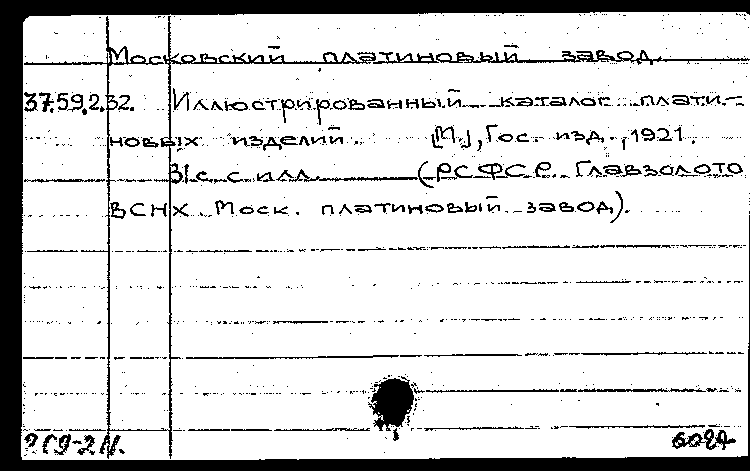 Московский платиновый завод.
37.59.2.32. Иллюстрированный каталог плати-
новых изделий. [М.], Гос. изд., 1921.
31 с. с илл. (РСФСР. Главзолото
ВСНХ. Моск. платиновый завод).